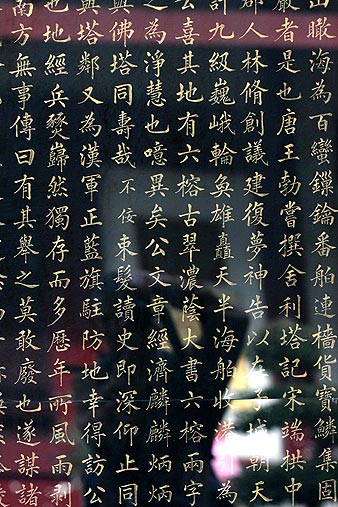 山瞰海為百蠻鏁鑰番舶連檣貨寶鱗集固
嚴者是也唐王勃嘗撰舍利塔記宋端拱中
郡人林脩創議建復夢神告以在子城朝天
計九級巍峨輪奐雄矗天半海舶收港為
公喜其地有六榕古翠濃蔭大書六榕兩字
之為淨慧也噫異矣公文章經濟麟麟炳炳
與佛塔同壽哉不佞束髮讀史即深仰止同
與塔鄰又為漢軍正藍旗駐防地幸得訪公
也地經兵燹巋然獨存而多歷年所風雨剥
南方無事傳曰有其舉之莫敢廢也遂謀諸